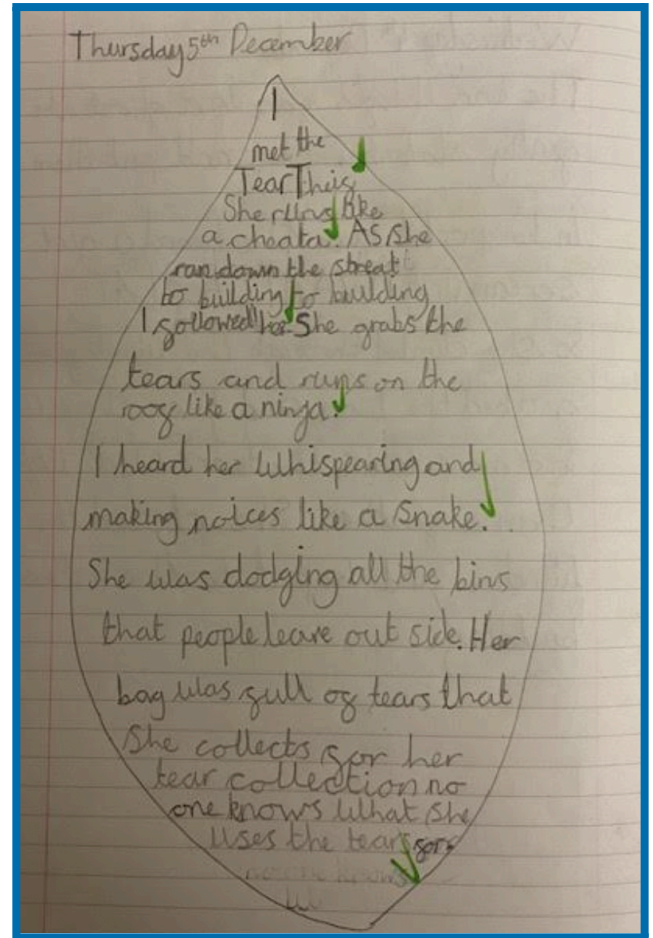 Thursday 5th December
I
met the
Tear Theif
She runs like
a cheata. As she
ran down the streat
to building to building
I followed her. She grabs the
tears and runs on the
roof like a ninja.
I heard her whispearing and
making noices like a snake.
She was dodging all the bins
that people leave out side. Her
bag was full of tears that
She collects for her
tear collection no
one knows what she
uses the tears for